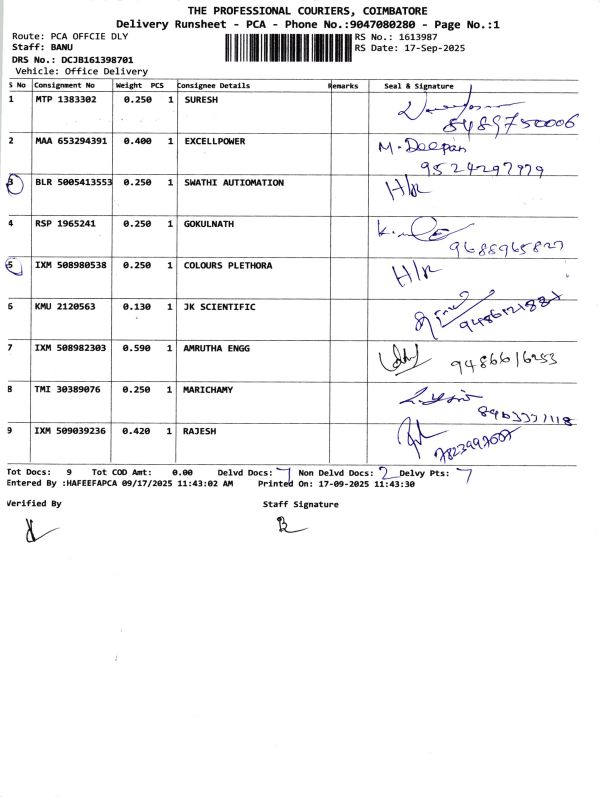 THE PROFESSIONAL COURIERS, COIMBATORE
Delivery Runsheet - PCA - Phone No.:9047080280 - Page No.:1
Route: PCA OFFCIE DLY RS No.: 1613987
Staff: BANU RS Date: 17-Sep-2025
DRS No.: DCJB161398701
Vehicle: Office Delivery
S No Consignment No Weight PCS Consignee Details Remarks Seal & Signature
1 MTP 1383302 0.250 1 SURESH
8489750006
2 MAA 653294391 0.400 1 EXCELLPOWER M. Deepan
9524297979
3 BLR 5005413553 0.250 1 SWATHI AUTIOMATION H/R
4 RSP 1965241 0.250 1 GOKULNATH
9688965827
5 IXM 508980538 0.250 1 COLOURS PLETHORA H/R
6 KMU 2120563 0.130 1 JK SCIENTIFIC
7 IXM 508982303 0.590 1 AMRUTHA ENGG 9486616253
8 TMI 30389076 0.250 1 MARICHAMY
9 IXM 509039236 0.420 1 RAJESH
Tot Docs: 9 Tot COD Amt: 0.00 Delvd Docs: 7 Non Delvd Docs: 2 Delvy Pts: 7
Entered By :HAFEEFAPCA 09/17/2025 11:43:02 AM Printed On: 17-09-2025 11:43:30
Verified By Staff Signature